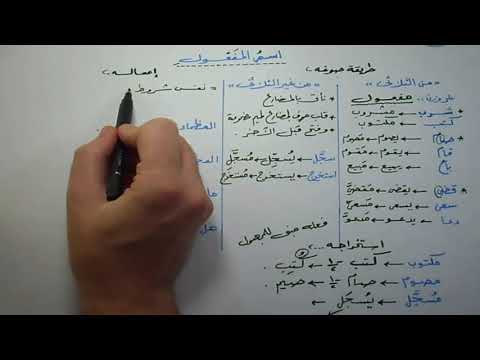 اسم المفعول
طريقة صوغه:
إعماله:
« من الثلاثي »
على وزن: مفعول
* شرب ← مشروب
كتب ← مكتوب
* صام ← يصوم ← مصوم
قام ← يقوم ← مقوم
باع ← يبيع ← مبيع
* قضى ← يقضي ← مقضيّ
سعى ← يسعى ← مسعيّ
دعا ← يدعو ← مدعوّ
« من غير الثلاثي »
* نأتي بالمضارع
* قلب حرف المضارع لميم مضمومة
* وفتح قبل الآخر
سجّل ← يُسجّل ← مُسجَّل
استخرج ← يستخرج ← مُستخرَج
فعله مبني للمجهول
= نفس شروط
المفعول
هل
استخراجه ...؟
مكتوب ← كتب ← كُتِبَ
مصوم ← صام ← صِيم.
مُسجَّل ← يُسجَّل ←